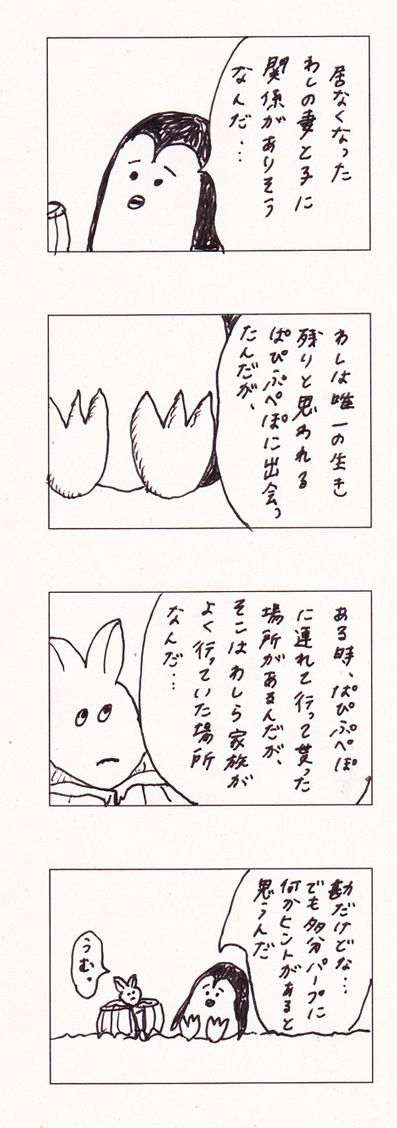 居なくなった
わしの妻と子に
関係がありそう
なんだ…
わしは唯一の生き
残りと思われる
ぱぴぷぺぽに出会っ
たんだが、
ある時、ぱぴぷぺぽ
に連れて行って貰った
場所があるんだが、
そこはわしら家族が
よく行っていた場所
なんだ…
勘だけどな…
でも多分パープに
何かヒントがあると
思うんだ
うむ。